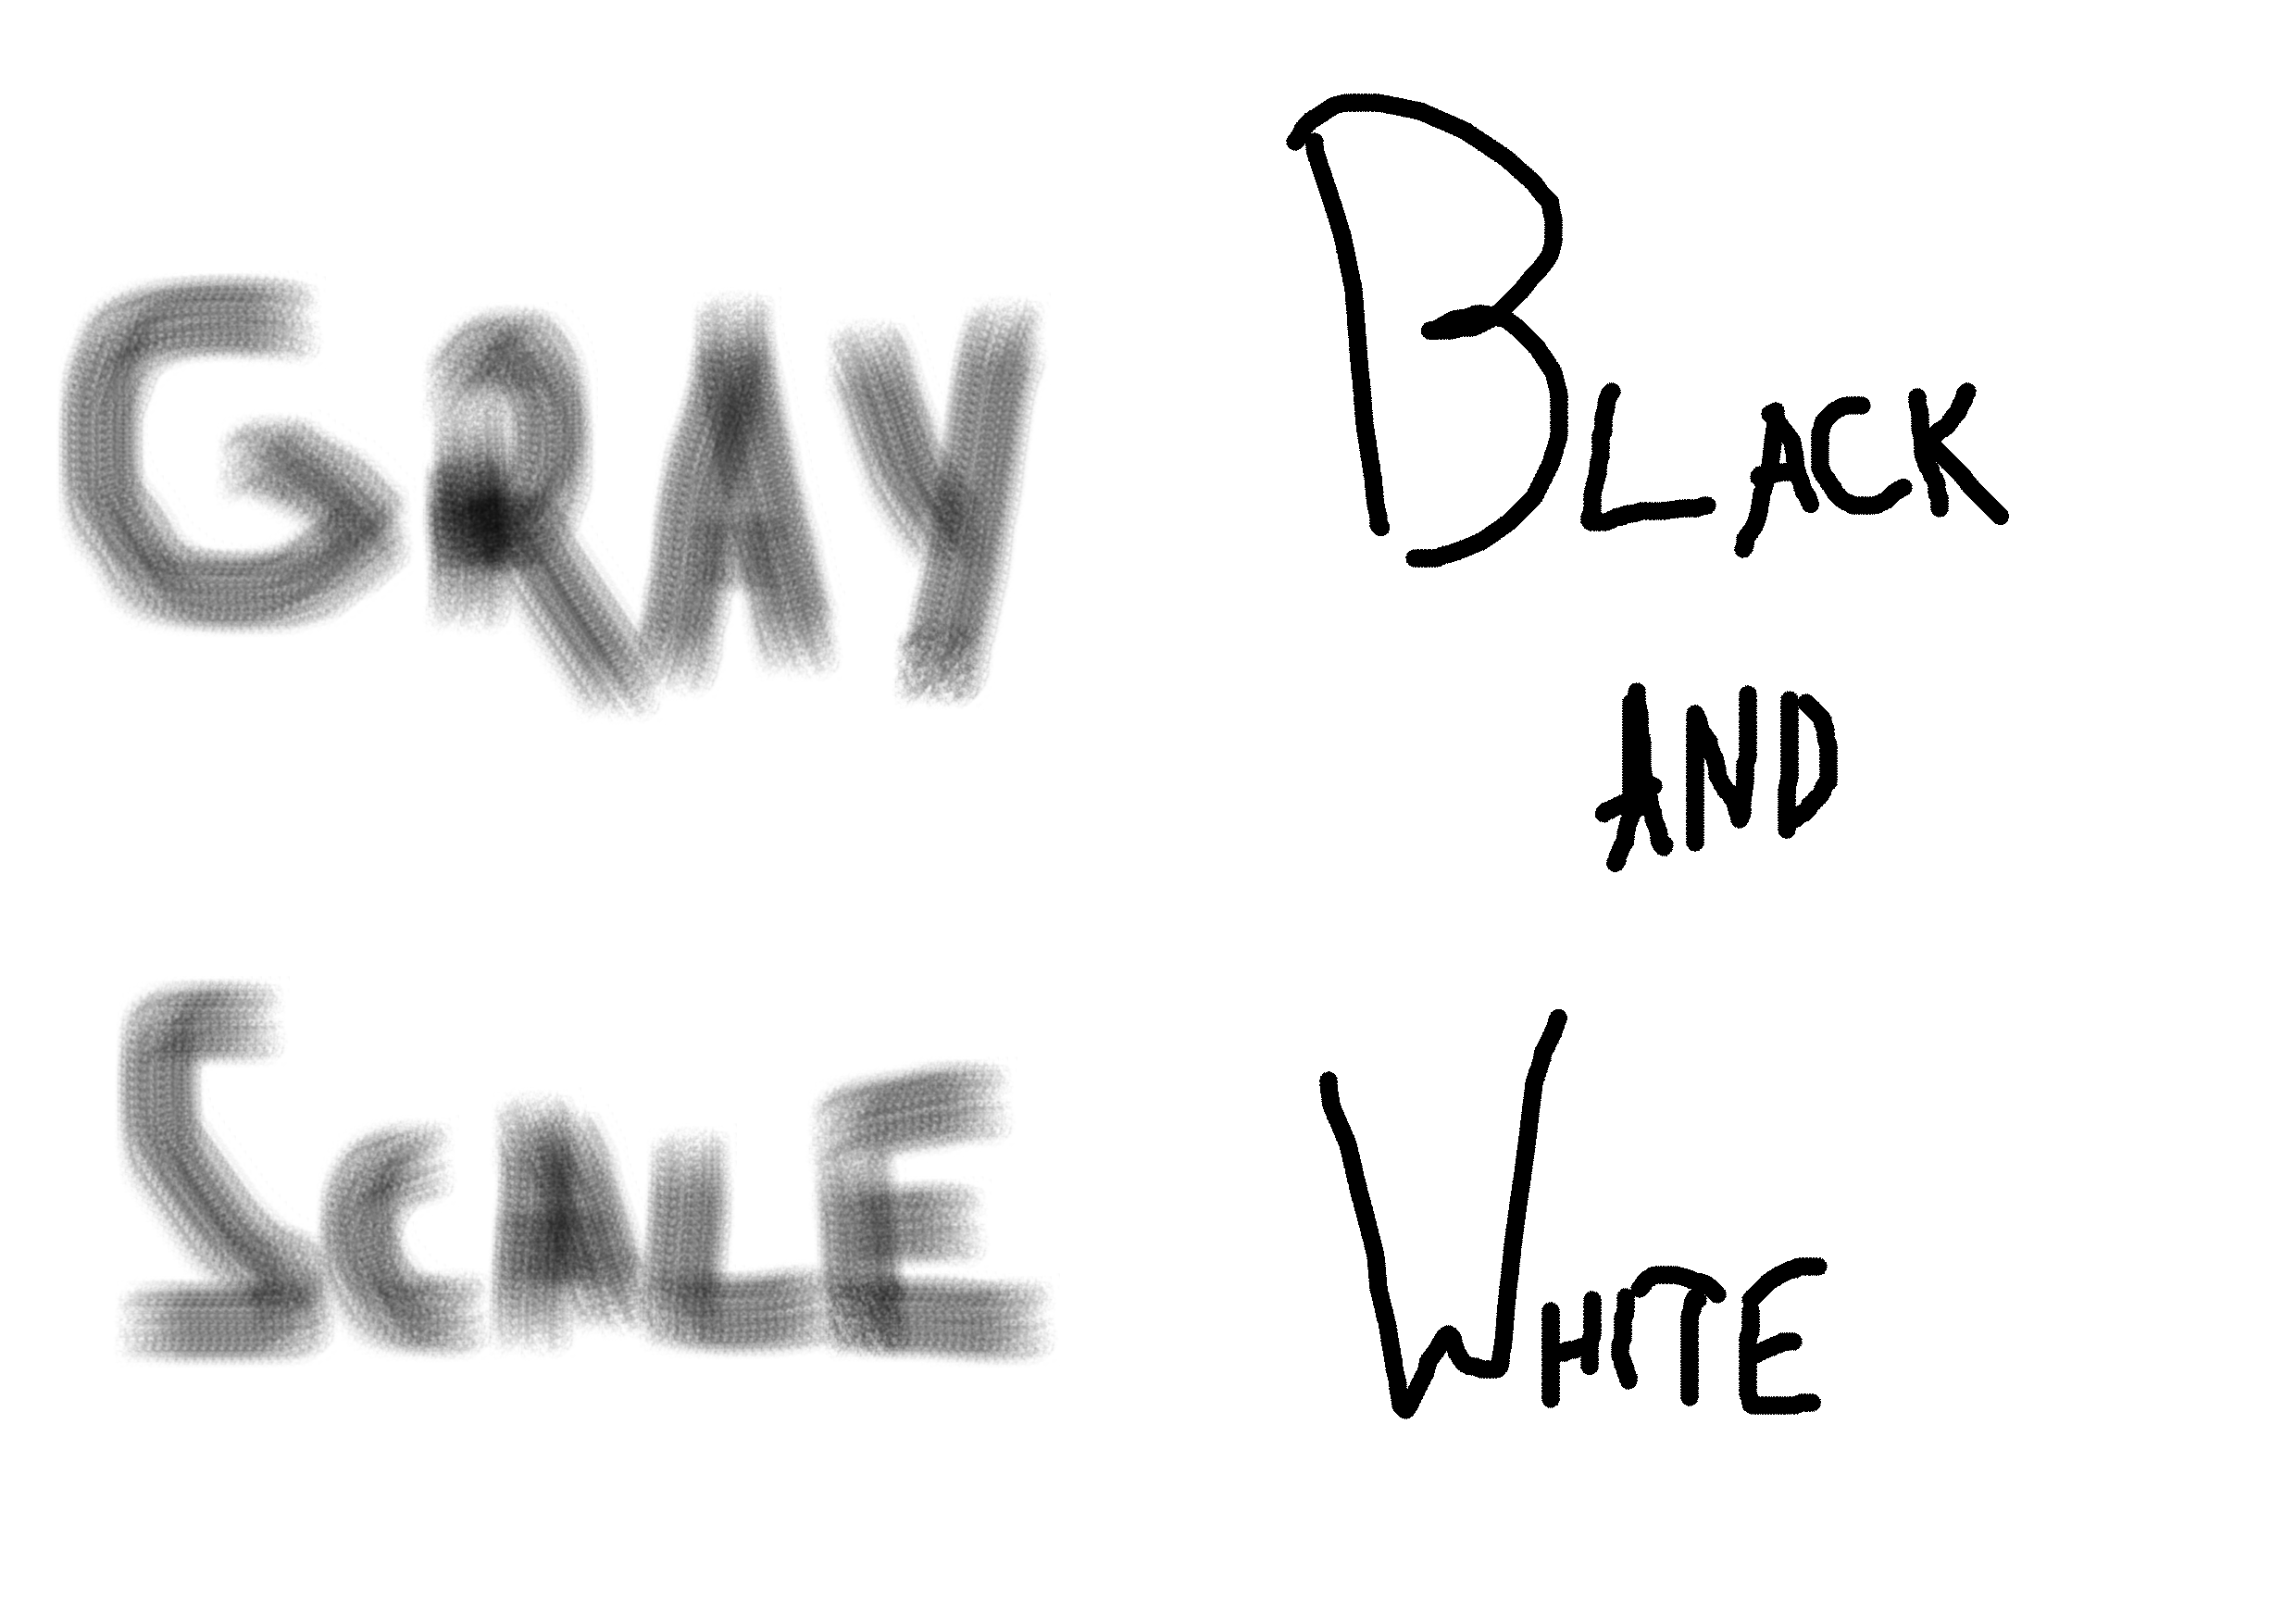 GRAY
SCALE
BLACK
AND
WHITE